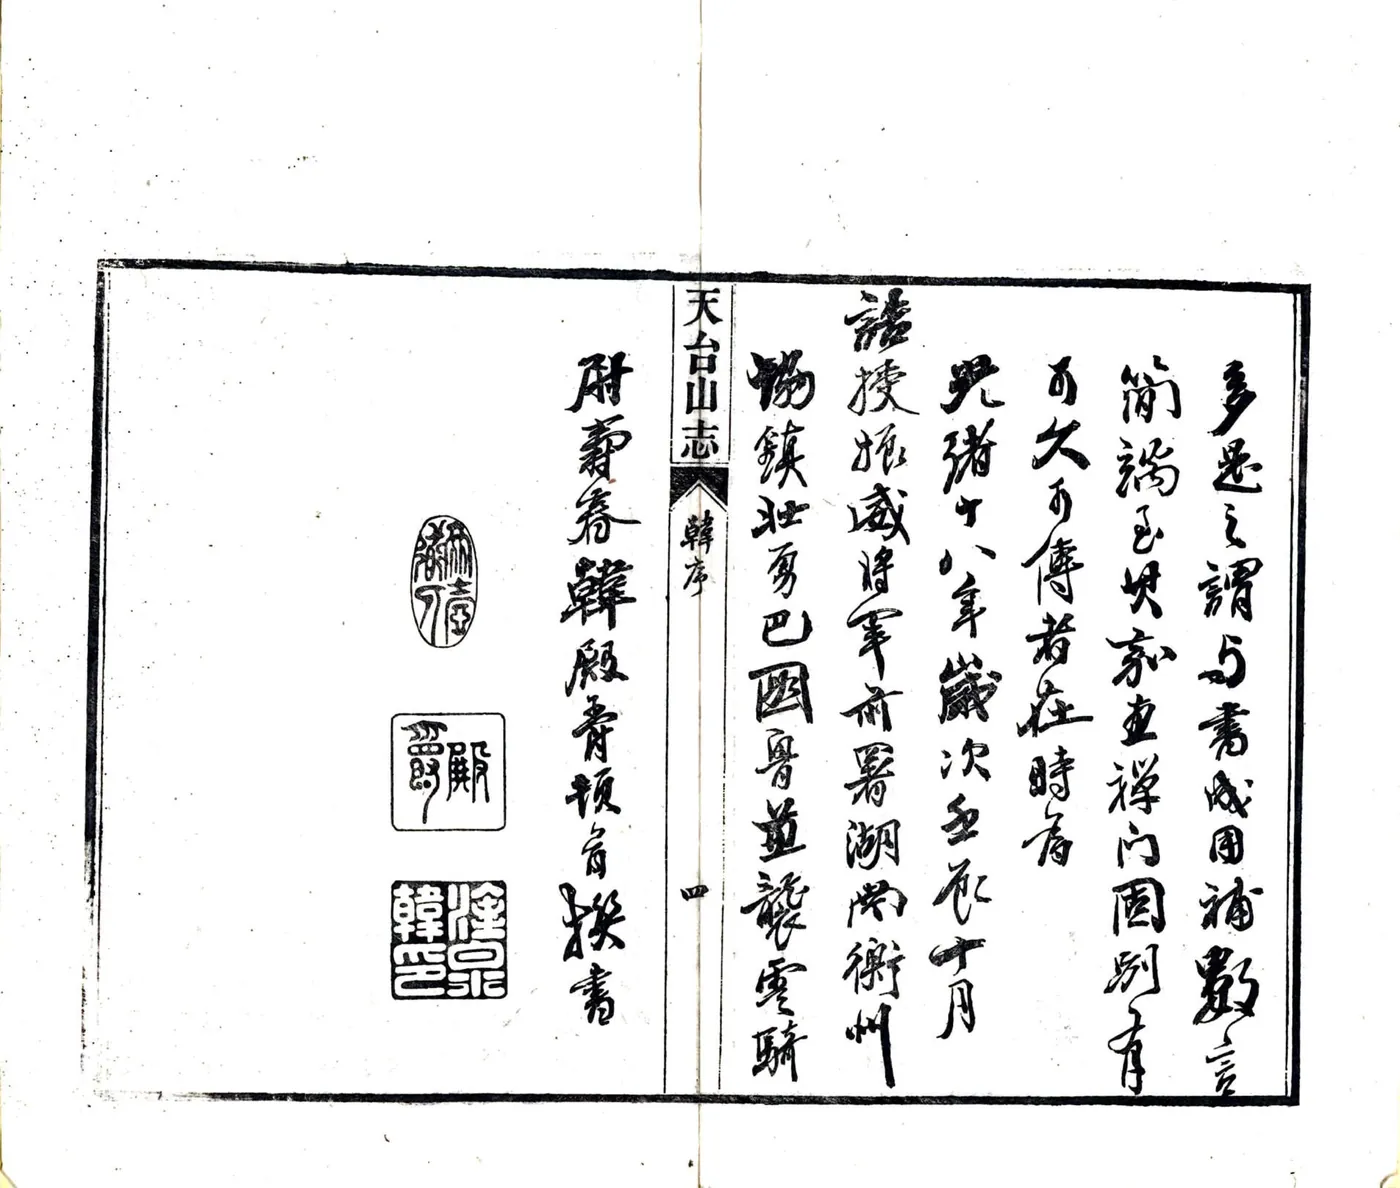 多是之謂与書成用補數言
簡端至其家禪門固別有
可久可傳者在時
光緒十八年歲次壬辰十月
誥授振威將軍前署湖南衡州
協鎮壯勇巴圖魯並襲雲騎
天台山志
韓序
四
尉壽春韓殿爵頓首撰書
殿爵
泉韓印